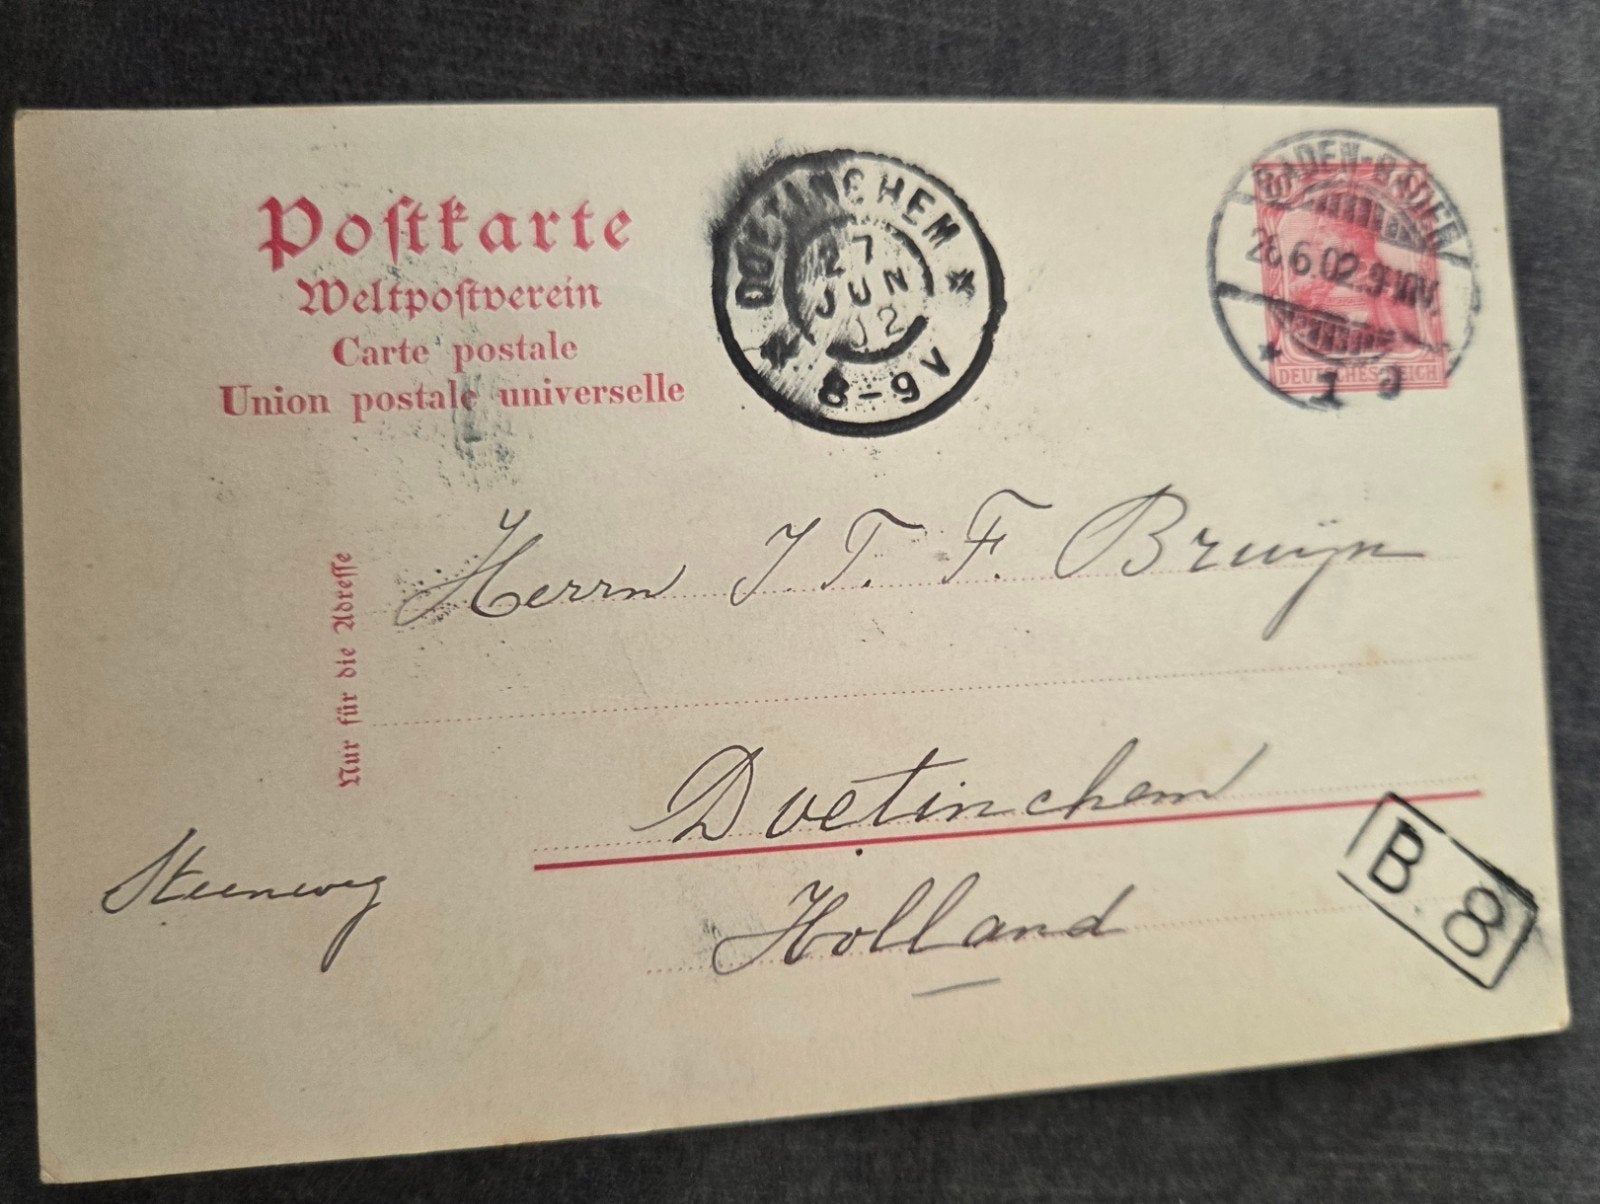 Postkarte
Weltpostverein
Carte postale
Union postale universelle
DOETINCHEM
27
JUN
02
8-9V
BADEN-BADEN
26.6.02.9-10N.
DEUTSCHES REICH
1 a
Nur für die Adresse
Herrn J. T. F. Bruijn
Doetinchem
Steenweg
Holland
B.8